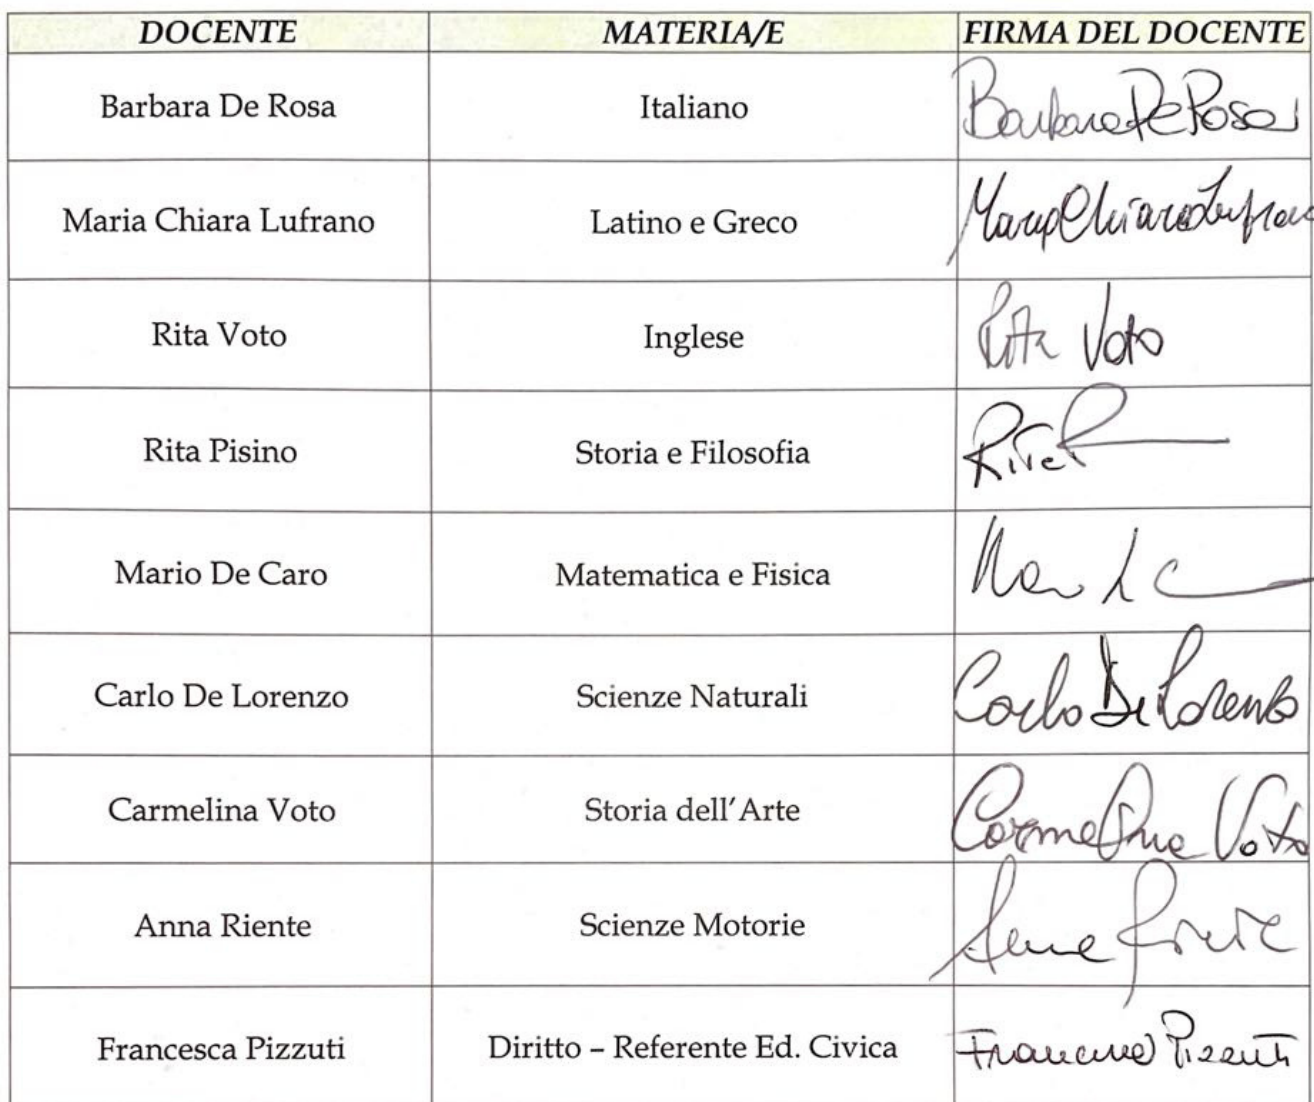 DOCENTE MATERIA/E FIRMA DEL DOCENTE
Barbara De Rosa Italiano Barbara De Rosa
Maria Chiara Lufrano Latino e Greco Maria Chiara Lufrano
Rita Voto Inglese Rita Voto
Rita Pisino Storia e Filosofia Rita P
Mario De Caro Matematica e Fisica
Carlo De Lorenzo Scienze Naturali Carlo De Lorenzo
Carmelina Voto Storia dell'Arte Carmelina Voto
Anna Riente Scienze Motorie Anna Riente
Francesca Pizzuti Diritto – Referente Ed. Civica Francesca Pizzuti